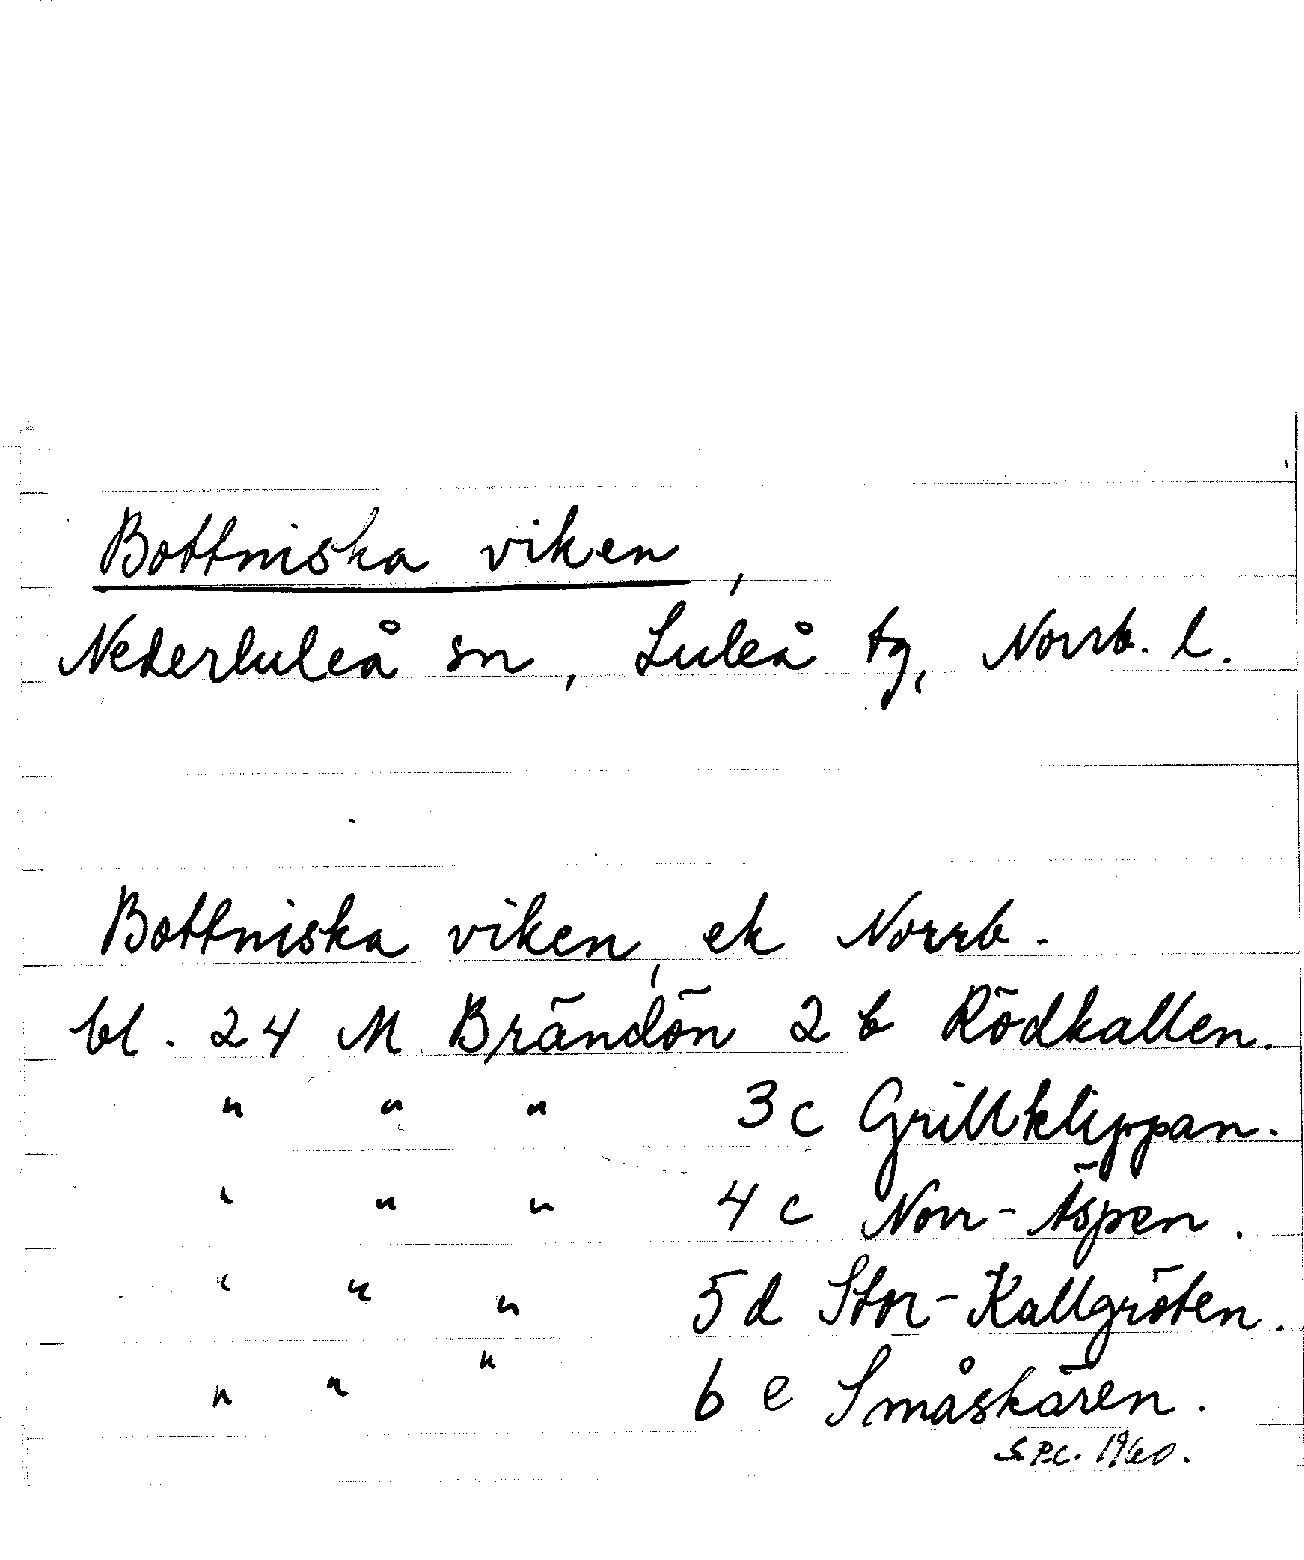 Bottniska viken,
Nederluleå sn, Luleå tg, Norrb. l.
Bottniska viken, ek Norrb.
bl. 24 M Brändön 2 b Rödkallen.
" " " 3 c Grillklippan.
" " " 4 c Norr-Äspen.
" " " 5 d Stor-Kallgröten.
" " " 6 e Småskären.
1960.